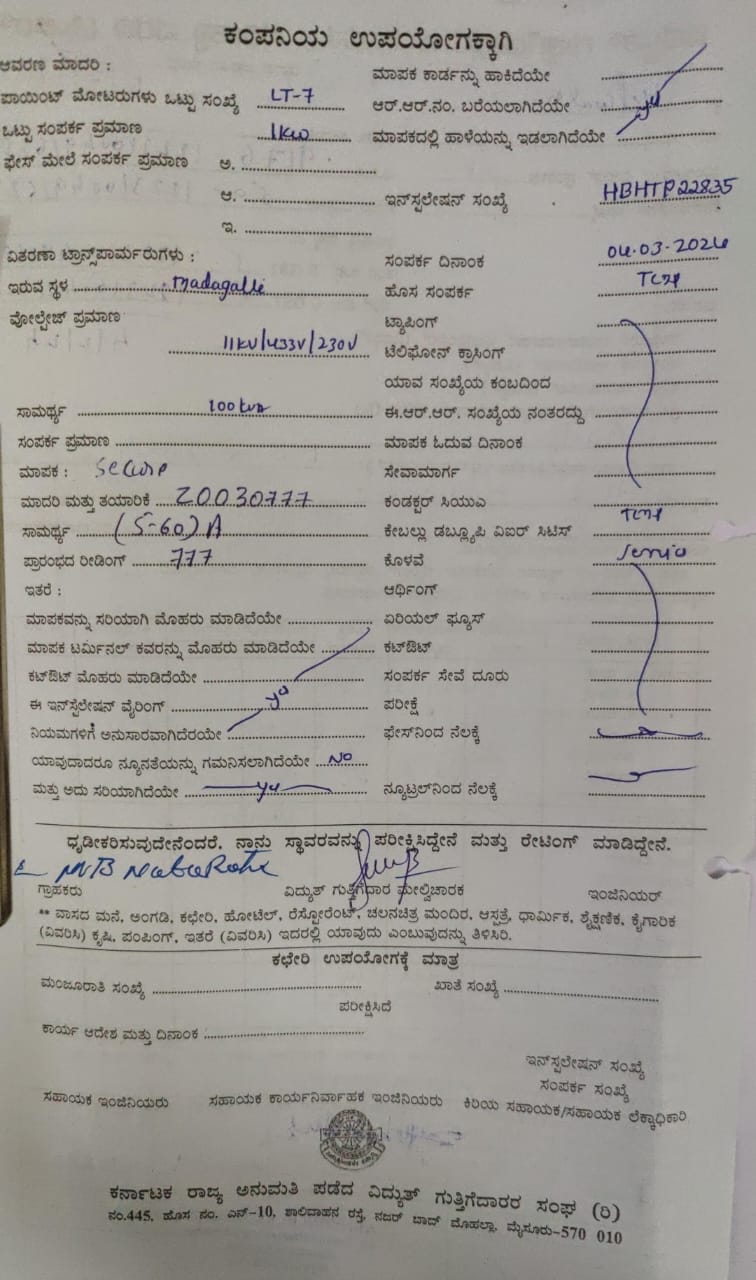 ಕಂಪನಿಯ ಉಪಯೋಗಕ್ಕಾಗಿ
ಆವರಣ ಮಾದರಿ :
ಪಾಯಿಂಟ್ ಮೋಟರುಗಳು ಒಟ್ಟು ಸಂಖ್ಯೆ LT-7
ಒಟ್ಟು ಸಂಪರ್ಕ ಪ್ರಮಾಣ 1kw
ಫೇಸ್ ಮೇಲೆ ಸಂಪರ್ಕ ಪ್ರಮಾಣ ಅ. ..........
ಆ. ..........
ಇ. ..........
ಮಾಪಕ ಕಾರ್ಡನ್ನು ಹಾಕಿದೆಯೇ ..........
ಆರ್.ಆರ್.ನಂ. ಬರೆಯಲಾಗಿದೆಯೇ ..........
ಮಾಪಕದಲ್ಲಿ ಹಾಳೆಯನ್ನು ಇಡಲಾಗಿದೆಯೇ ..........
ಇನ್‌ಸ್ಟಲೇಷನ್ ಸಂಖ್ಯೆ HBHTP22835
ವಿತರಣಾ ಟ್ರಾನ್ಸ್‌ಪಾರ್ಮರುಗಳು :
ಇರುವ ಸ್ಥಳ Madagalli
ವೋಲ್ಟೇಜ್ ಪ್ರಮಾಣ
11kV/433V/230V
ಸಾಮರ್ಥ್ಯ 100kva
ಸಂಪರ್ಕ ಪ್ರಮಾಣ ..........
ಮಾಪಕ : Secure
ಮಾದರಿ ಮತ್ತು ತಯಾರಿಕೆ 20030777
ಸಾಮರ್ಥ್ಯ (5-60)A
ಪ್ರಾರಂಭದ ರೀಡಿಂಗ್ 777
ಇತರೆ :
ಮಾಪಕವನ್ನು ಸರಿಯಾಗಿ ಮೊಹರು ಮಾಡಿದೆಯೇ ..........
ಮಾಪಕ ಟರ್ಮಿನಲ್ ಕವರನ್ನು ಮೊಹರು ಮಾಡಿದೆಯೇ ..........
ಕಟ್‌ಔಟ್ ಮೊಹರು ಮಾಡಿದೆಯೇ ..........
ಈ ಇನ್‌ಸ್ಟೆಲೇಷನ್ ವೈರಿಂಗ್ ..........
ನಿಯಮಗಳಿಗೆ ಅನುಸಾರವಾಗಿದೆರಯೇ ..........
ಯಾವುದಾದರೂ ನ್ಯೂನತೆಯನ್ನು ಗಮನಿಸಲಾಗಿದೆಯೇ No
ಮತ್ತು ಅದು ಸರಿಯಾಗಿದೆಯೇ ..........
ಸಂಪರ್ಕ ದಿನಾಂಕ 04.03.2024
ಹೊಸ ಸಂಪರ್ಕ
ಟ್ಯಾಪಿಂಗ್ ..........
ಟೆಲಿಫೋನ್ ಕ್ರಾಸಿಂಗ್ ..........
ಯಾವ ಸಂಖ್ಯೆಯ ಕಂಬದಿಂದ ..........
ಈ.ಆರ್.ಆರ್. ಸಂಖ್ಯೆಯ ನಂತರದ್ದು ..........
ಮಾಪಕ ಓದುವ ದಿನಾಂಕ ..........
ಸೇವಾಮಾರ್ಗ ..........
ಕಂಡಕ್ಟರ್ ಸಿಯುಎ ..........
ಕೇಬಲ್ಲು ಡಬ್ಲ್ಯೂಪಿ ವಿಐರ್ ಸಿಟಿಸ್
ಕೊಳವೆ ..........
ಆರ್ಥಿಂಗ್ ..........
ಏರಿಯಲ್ ಫ್ಯೂಸ್ ..........
ಕಟ್‌ಔಟ್ ..........
ಸಂಪರ್ಕ ಸೇವೆ ದೂರು ..........
ಪರೀಕ್ಷೆ ..........
ಫೇಸ್‌ನಿಂದ ನೆಲಕ್ಕೆ ..........
ನ್ಯೂಟ್ರಲ್‌ನಿಂದ ನೆಲಕ್ಕೆ ..........
ಧೃಡೀಕರಿಸುವುದೇನೆಂದರೆ, ನಾನು ಸ್ಥಾವರವನ್ನು ಪರೀಕ್ಷಿಸಿದ್ದೇನೆ ಮತ್ತು ರೇಟಿಂಗ್ ಮಾಡಿದ್ದೇನೆ.
ಗ್ರಾಹಕರು ವಿದ್ಯುತ್ ಗುತ್ತಿಗೆದಾರ ಮೇಲ್ವಿಚಾರಕ ಇಂಜಿನಿಯರ್
** ವಾಸದ ಮನೆ, ಅಂಗಡಿ, ಕಛೇರಿ, ಹೋಟೆಲ್, ರೆಸ್ಟೋರೆಂಟ್, ಚಲನಚಿತ್ರ ಮಂದಿರ, ಆಸ್ಪತ್ರೆ, ಧಾರ್ಮಿಕ, ಶೈಕ್ಷಣಿಕ, ಕೈಗಾರಿಕ
(ವಿವರಿಸಿ) ಕೃಷಿ, ಪಂಪಿಂಗ್, ಇತರೆ (ವಿವರಿಸಿ) ಇದರಲ್ಲಿ ಯಾವುದು ಎಂಬುವುದನ್ನು ತಿಳಿಸಿರಿ.
ಕಛೇರಿ ಉಪಯೋಗಕ್ಕೆ ಮಾತ್ರ
ಮಂಜೂರಾತಿ ಸಂಖ್ಯೆ .......... ಖಾತೆ ಸಂಖ್ಯೆ ..........
ಪರೀಕ್ಷಿಸಿದೆ
ಕಾರ್ಯ ಆದೇಶ ಮತ್ತು ದಿನಾಂಕ ..........
ಇನ್‌ಸ್ಪಲೇಷನ್ ಸಂಖ್ಯೆ
ಸಂಪರ್ಕ ಸಂಖ್ಯೆ
ಸಹಾಯಕ ಇಂಜಿನಿಯರು ಸಹಾಯಕ ಕಾರ್ಯನಿರ್ವಾಹಕ ಇಂಜಿನಿಯರು ಕಿರಿಯ ಸಹಾಯಕ/ಸಹಾಯಕ ಲೆಕ್ಕಾಧಿಕಾರಿ
ಕರ್ನಾಟಕ ರಾಜ್ಯ ಅನುಮತಿ ಪಡೆದ ವಿದ್ಯುತ್ ಗುತ್ತಿಗೆದಾರರ ಸಂಘ (ರಿ)
ನಂ.445, ಹೊಸ ನಂ. ಎನ್-10, ಶಾಲಿವಾಹನ ರಸ್ತೆ, ನಜರ್ ಬಾದ್ ಮೊಹಲ್ಲಾ, ಮೈಸೂರು-570 010